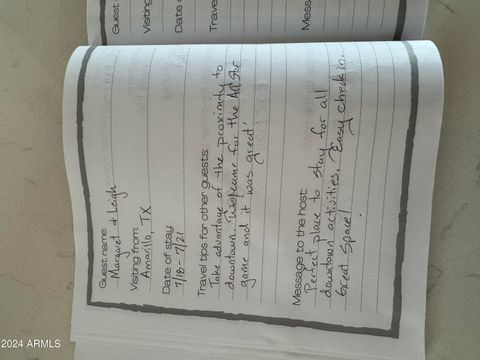 Guest
Visiting
Date o
Trave
Mess
Guest name:
Margaret & Leigh
Visiting from:
Amarillo, TX
Date of stay:
7/18 - 7/21
Travel tips for other guests:
Take advantage of the proximity to
downtown. We came for the All Star
game and it was great!
Message to the host:
Perfect place to stay for all
downtown activities. Easy check in.
Great Space!
2024 ARMLS